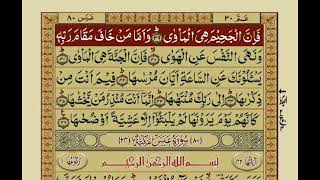 عَمَّ ٣٠ عَبَسَ ٨٠
فَاِنَّ الْجَحِيْمَ هِيَ الْمَاْوٰى ۝ وَاَمَّا مَنْ خَافَ مَقَامَ رَبِّهٖ
وَنَهَى النَّفْسَ عَنِ الْهَوٰى ۝ فَاِنَّ الْجَنَّةَ هِيَ الْمَاْوٰى ۝
يَسْـَٔلُوْنَكَ عَنِ السَّاعَةِ اَيَّانَ مُرْسٰىهَا ۝ فِيْمَ اَنْتَ مِنْ
ذِكْرٰىهَا ۝ اِلٰى رَبِّكَ مُنْتَهٰىهَا ۝ اِنَّمَآ اَنْتَ مُنْذِرُ مَنْ يَّخْشٰىهَا ۝
كَاَنَّهُمْ يَوْمَ يَرَوْنَهَا لَمْ يَلْبَثُوْٓا اِلَّا عَشِيَّةً اَوْ ضُحٰىهَا ۝
(٨٠) سُوْرَةُ عَبَسَ مَكِّيَّةٌ (٢٤)
اٰيَاتُهَا ٤٢ بِسْمِ اللهِ الرَّحْمٰنِ الرَّحِيْمِ رُكُوْعُهَا